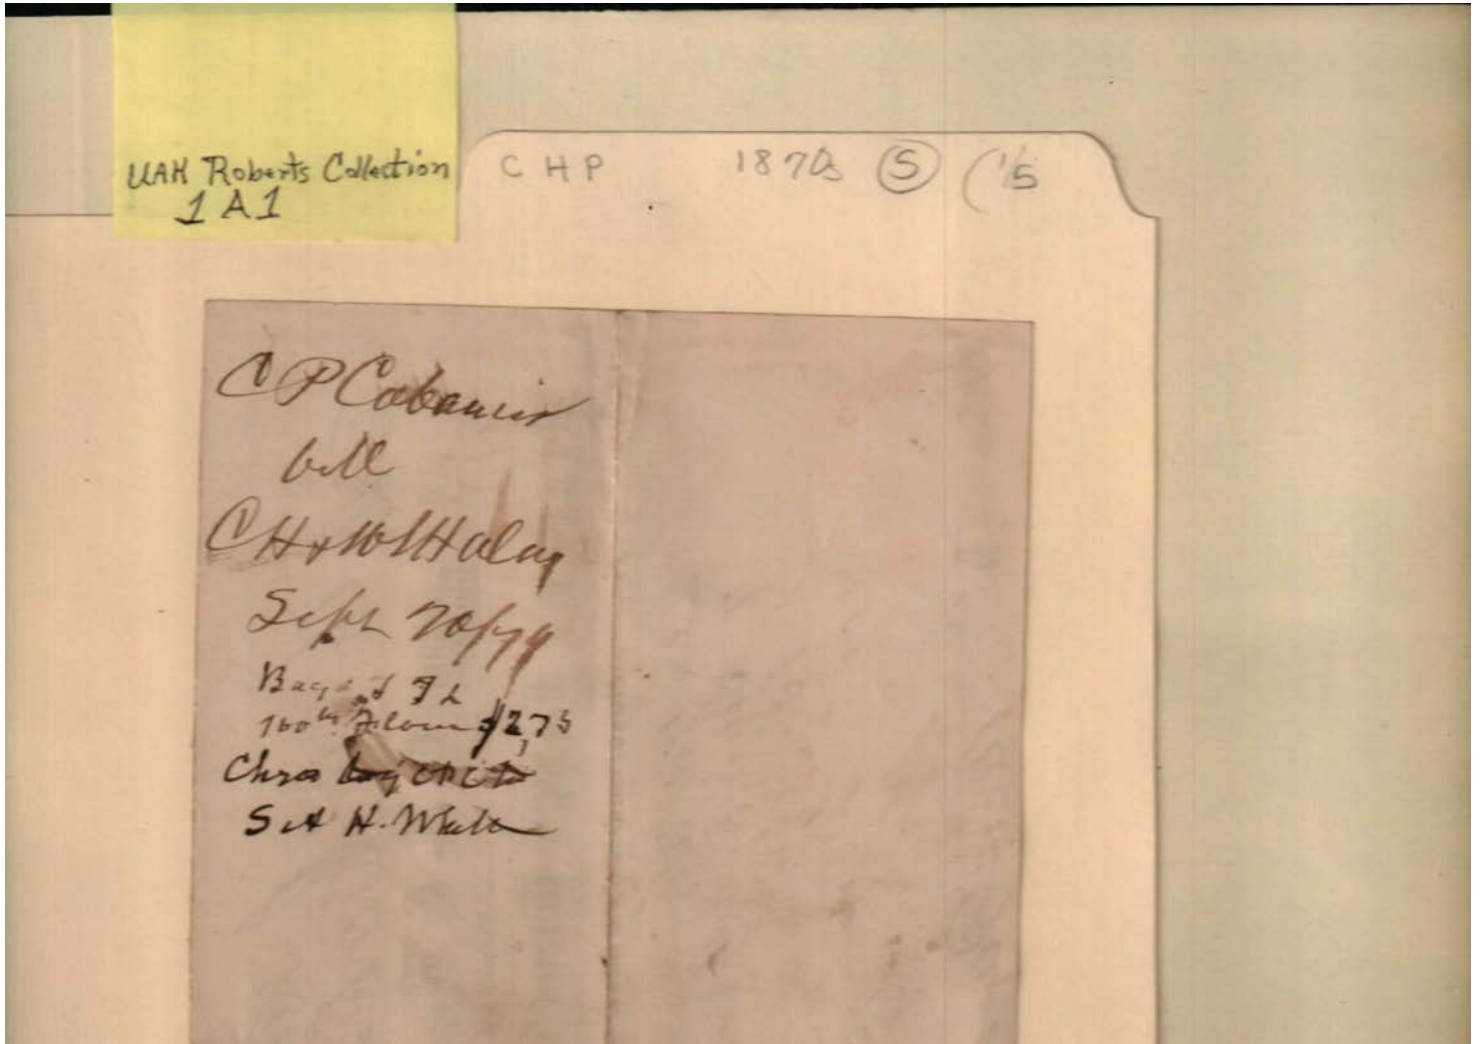 UAH Roberts Collection
1A1
CHP 1870s (5) (15
C P Cabaniss
bill
C H & W L Halsey
Sept 20/79
100 lb Flour $2,75
Chas
S A H. White